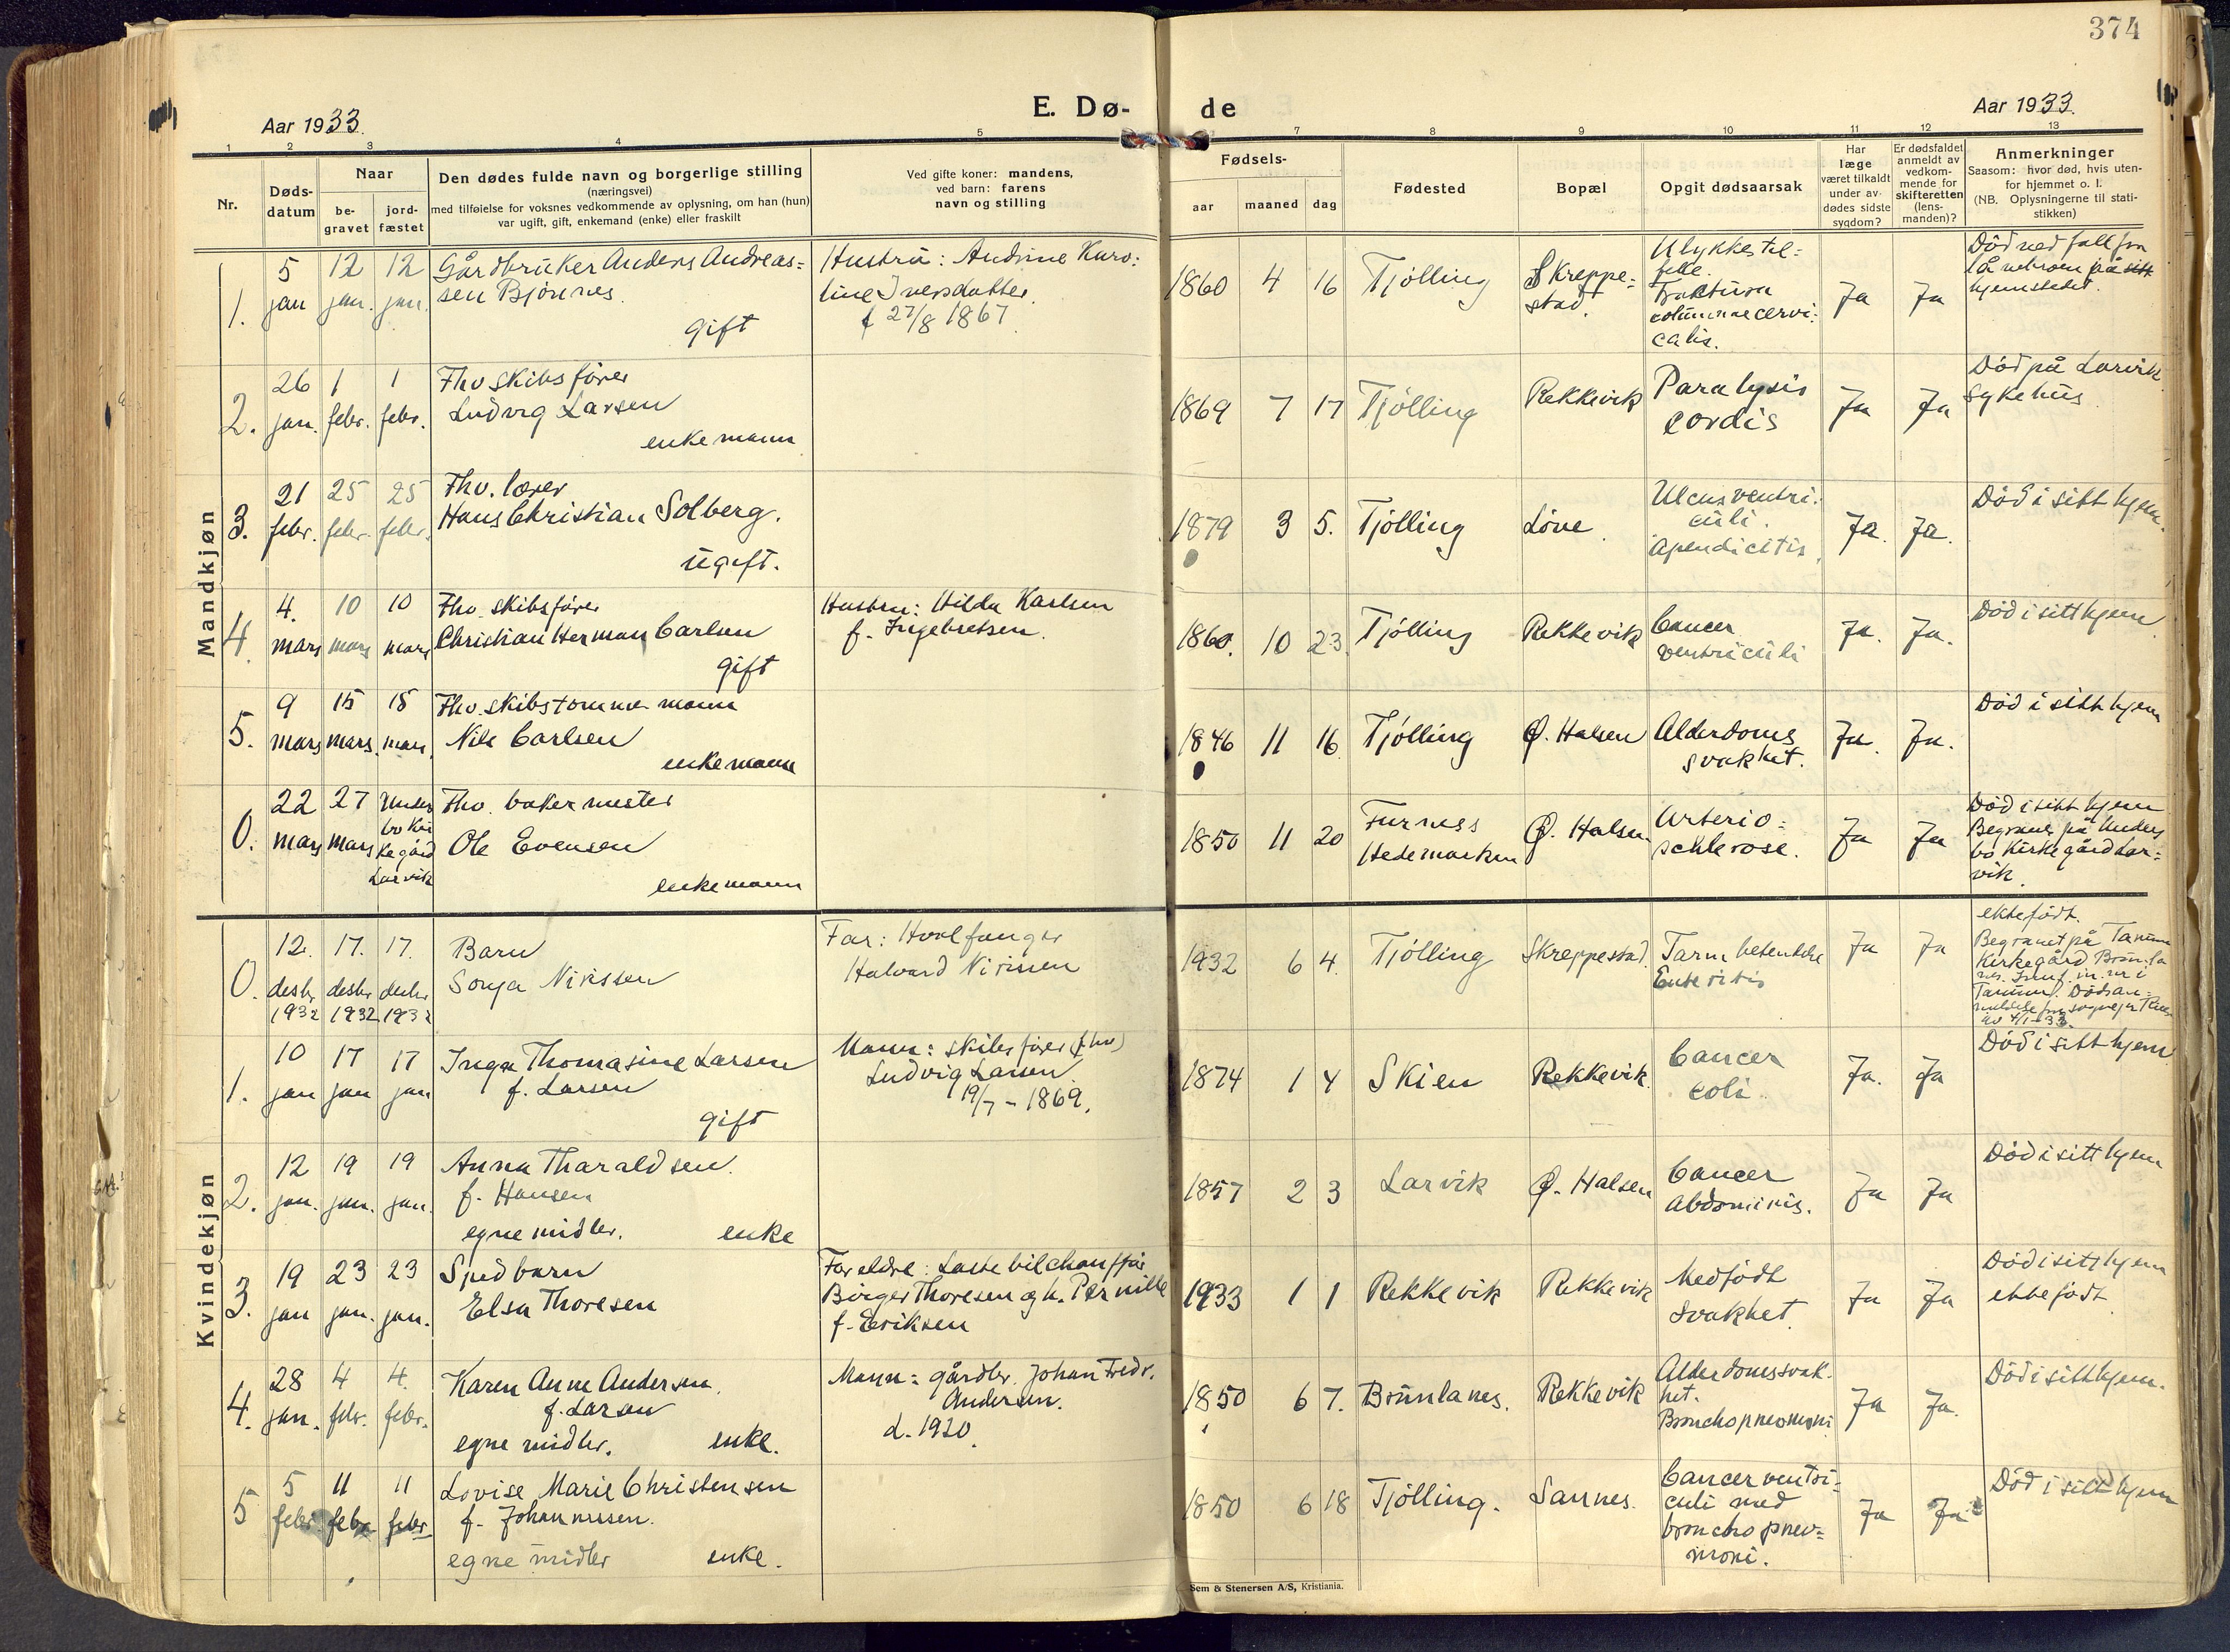 374
Aar 1933.
E. Dø-
de
Aar 1933.
1 2 3 4 5 7 8 9 10 11 12 13
Nr.
Døds-
datum
Naar
be-
gravet
jord-
fæstet
Den dødes fulde navn og borgerlige stilling
(næringsvei)
med tilføielse for voksnes vedkommende av oplysning, om han (hun)
var ugift, gift, enkemand (enke) eller fraskilt
Ved gifte koner: mandens,
ved barn: farens
navn og stilling
Fødsels-
aar maaned dag
Fødested
Bopæl
Opgit dødsaarsak
Har
læge
været tilkaldt
under av-
dødes sidste
sygdom?
Er dødsfaldet
anmeldt av
vedkom-
mende for
skifteretten
(lens-
manden)?
Anmerkninger
Saasom: hvor død, hvis uten-
for hjemmet o. l.
(NB. Oplysningerne til stati-
stikken)
Mandkjøn
1.
5
jan
12
jan.
12
jan.
Gårdbruker Anders Andreas=
sen Bjønnes.
gift
Hustru: Andrine Karo:
line Iversdatter.
f 27/8 1867
1860 4 16
Tjølling
Skreppe=
stad.
Ulykkestil=
felle.
Fraktura
columnae cervi:
calis.
Ja
Ja
Død ved fall fra
låvebroen på sitt
hjemsted.
2.
26
jan.
1
febr.
1
febr.
Fhv skibsfører
Ludvig Larsen
enkemann
1869 7 17
Tjølling
Rekkevik
Paralysis
cordis
Ja
Ja
Død på Larvik
sykehus
3.
21
febr.
25
febr.
25
febr.
Fhv. lærer
Hans Christian Solberg.
ugift.
1879 3 5.
Tjølling
Løve.
Ulcus ventri:
culi.
Apendicitis.
Ja.
Ja.
Død i sitt hjem.
4.
4.
mars
10
mars
10
mars
Fhv. skibsfører
Christian Herman Carlsen
gift
Hustru: Hilda Karlsen
f. Ingebretsen.
1860. 10 23.
Tjølling
Rekkevik
Cancer
ventriculi
Ja.
Ja.
Død i sitt hjem.
5.
9
mars
15
mars.
15
mars.
Fhv. skibstømmermann
Nils Carlsen
enkemann
1846 11 16
Tjølling
Ø. Halsen
Alderdoms
svakhet.
Ja.
Ja.
Død i sitt hjem
0.
22
mars
27
mars
Unders
bo Kir
kegård
Larvik
Fhv. bakermester
Ole Evensen
enkemann
1850 11 20
Furness
Hedemarken
Ø. Halsen
Arterio=
schlerose.
Ja
Ja
Død i sitt hjem
Begraves på Unders
bo Kirkegård Lar=
vik.
Kvindekjøn
0.
12.
desbr
1932
17.
desbr
1932
17.
desbr
1932
Barn
Sonja Nirissen
Far: Hvalfanger
Halvard Nirissen
1932 6 4.
Tjølling
Skreppestad.
Tarmbetendelse
Enteritis
Ja
Ja
ektefødt.
Begravet på Tanum
Kirkegård Brunla
nes. Innf. m. nr i
Tanum. Dødsan=
meldelse fra sogneprest
av 4/1-33.
1.
10
jan
17
jan
17
jan
Inga Thomasine Larsen
f. Larsen
gift
Mann: skibsfører (fhv)
Ludvig Larsen
19/7 - 1869.
1874 1 4
Skien
Rekkevik.
Cancer
coli.
Ja.
Ja
Død i sitt hjem
2.
12
jan.
19
jan.
19
jan.
Anna Tharaldsen.
f. Hansen
egne midler. enke
1857 2 3
Larvik
Ø. Halsen
Cancer
Abdominis.
Ja
Ja
Død i sitt hjem
3.
19
jan
23
jan.
23
jan.
Spedbarn
Elsa Thoresen
Foreldre: Lastebilchauffør
Birger Thoresen og h. Pernille
f. Eriksen
1933 1 1
Rekkevik
Rekkevik
Medfødt
svakhet.
Ja
Ja
Død i sitt hjem
ektefødt.
4.
28
jan.
4
febr.
4.
febr.
Karen Anne Andersen.
f. Larsen
egne midler. enke.
Mann: gårdbr. Johan Fredr.
Andersen.
d. 1920.
1850 6 7.
Brunlanes.
Rekkevik
Alderdomssvak-
het.
Bronchopneomoni
Ja
Ja.
Død i sitt hjem.
5
5
febr.
11
febr
11
febr.
Lovise Marie Christensen
f. Johannessen.
egne midler enke.
1850 6 18
Tjølling.
Sannes.
Cancer ventri=
culi med
bronchopnev=
moni.
Ja
Ja
Død i sitt hjem
Sem & Stenersen A/S, Kristiania.